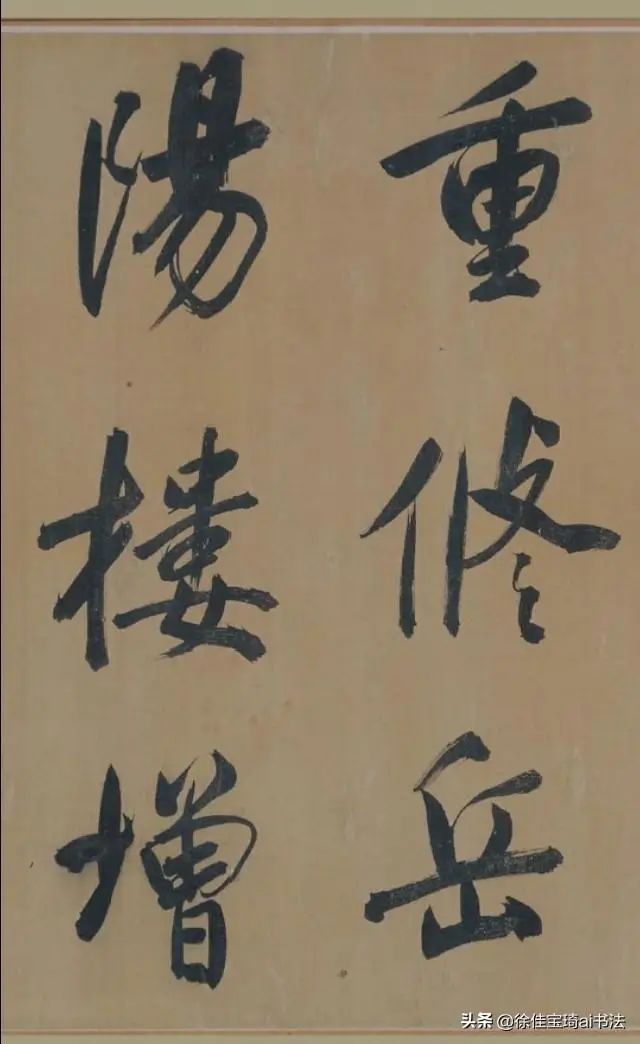 重修岳
陽樓增
头条 @徐佳宝琦ai书法